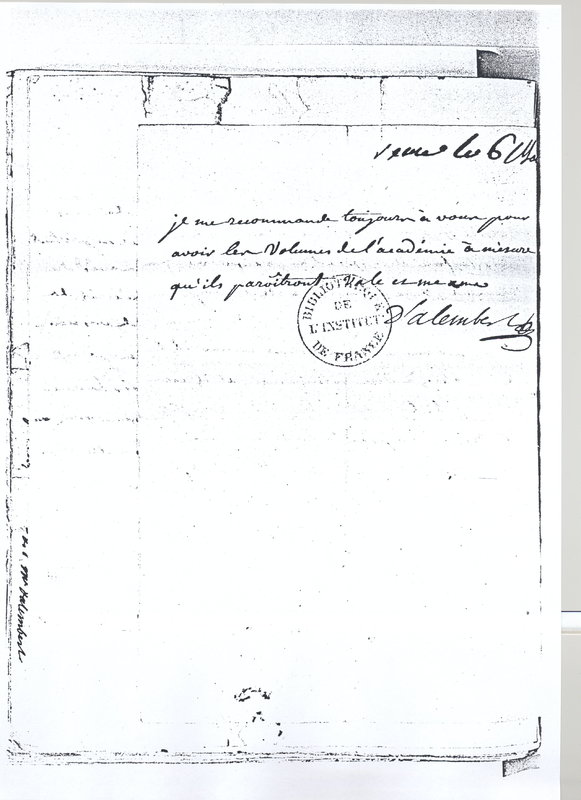 le 6
je me recommande toujours à vous pour
avoir les Volumes de l'académie à mesure
qu'ils paroîtront Vale et me ama
D'alembert
BIBLIOTHEQUE
DE
L'INSTITUT
DE FRANCE
Dalembert